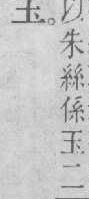 玉。以
朱絲係玉二